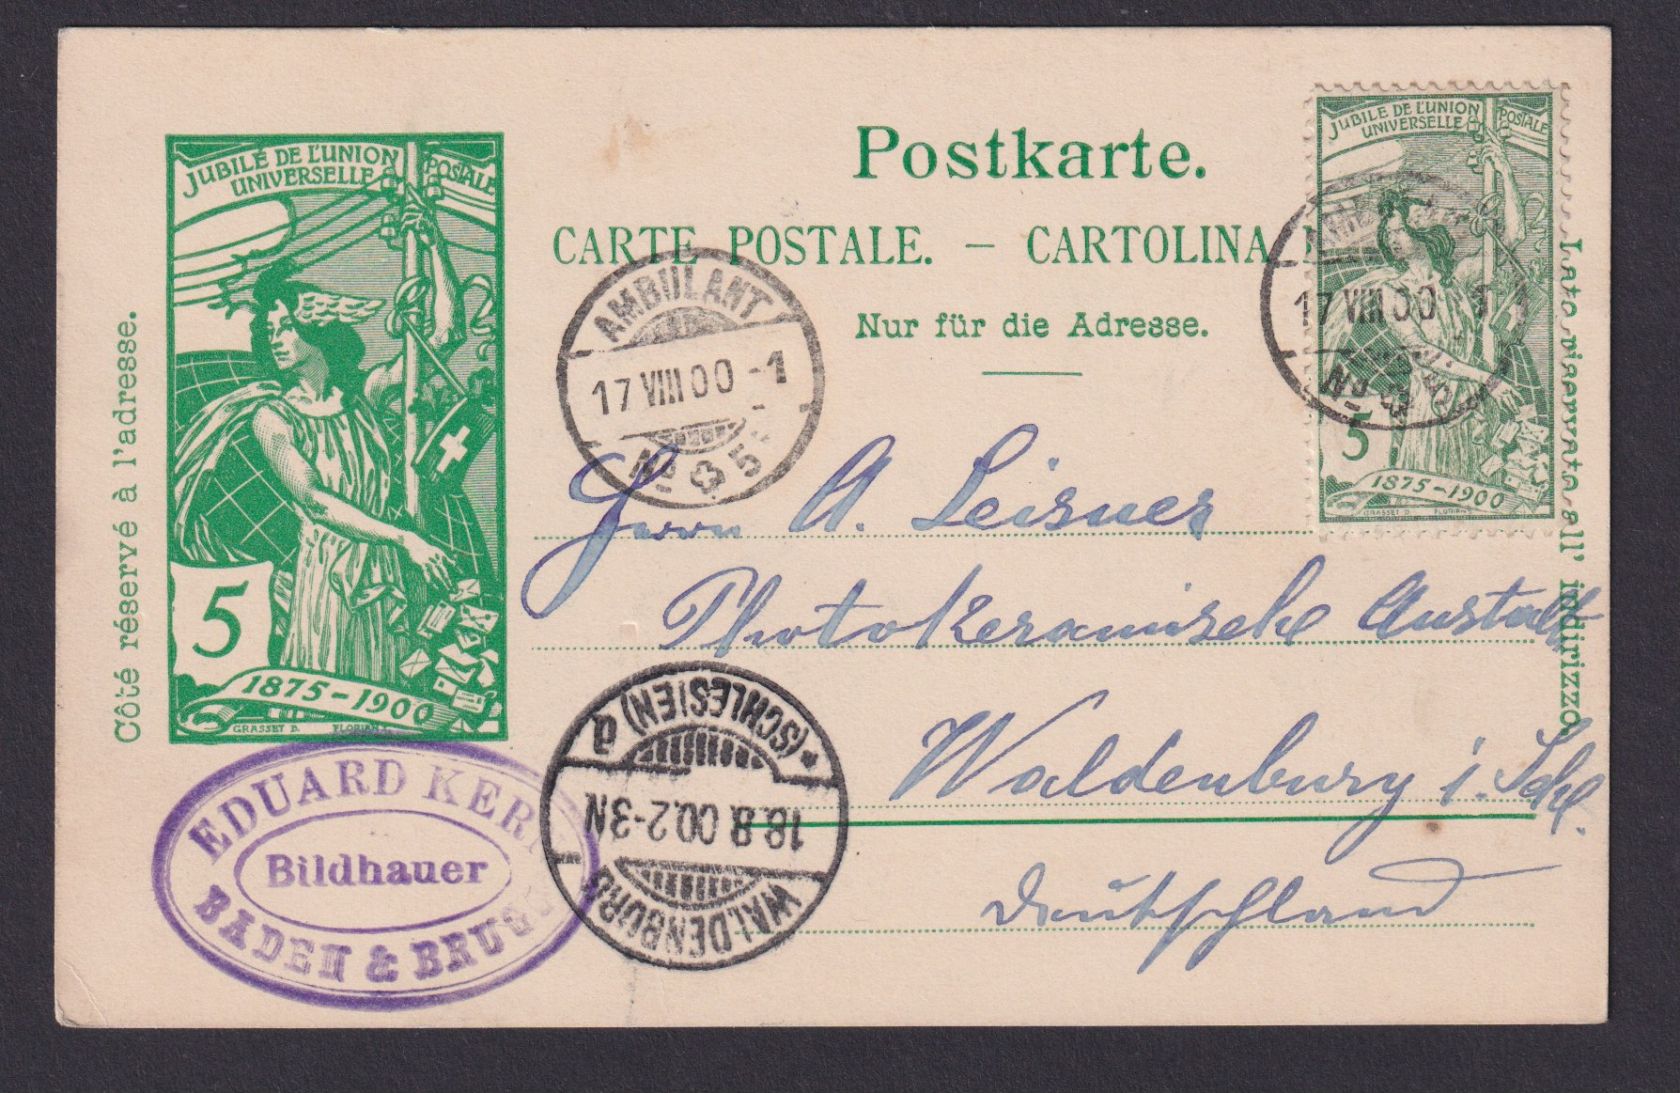 Postkarte.
CARTE POSTALE. – CARTOLINA
Nur für die Adresse.
Côté réservé à l'adresse.
Lato riservato all' indirizzo.
JUBILÉ DE L'UNION POSTALE
UNIVERSELLE
5
1875–1900
GRASSET D.
JUBILÉ DE L'UNION POSTALE
UNIVERSELLE
5
1875–1900
GRASSET D. FLORIAN
AMBULANT
17 VIII 00 -1
No 5
17 VIII 00
No
Herrn A. Leisner
Photokeramische Anstalt
Waldenburg i. Schl.
Deutschland
WALDENBURG
18.8.00.2-3N
* (SCHLESIEN) a
EDUARD
Bildhauer
BADEN &